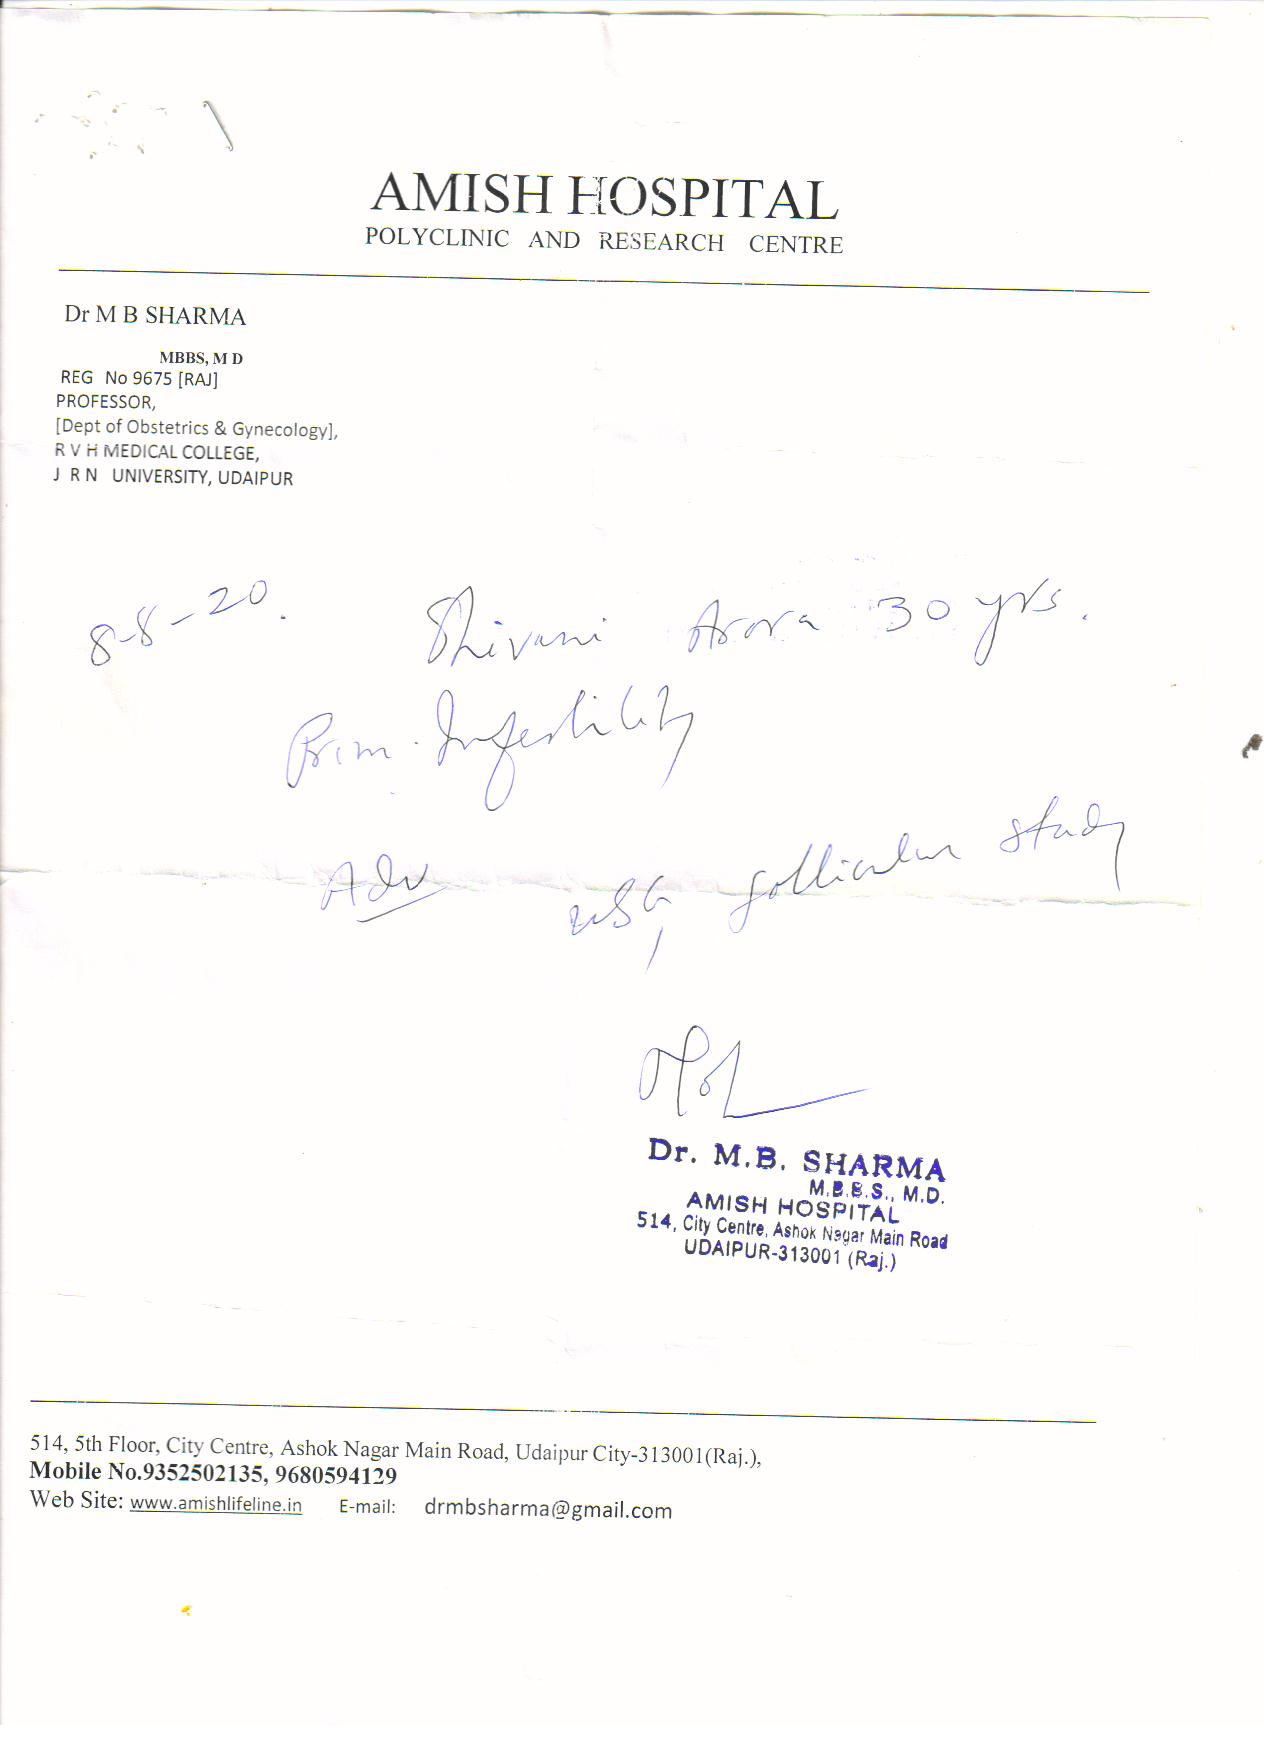 AMISH HOSPITAL
POLYCLINIC AND RESEARCH CENTRE
Dr M B SHARMA
MBBS, M D
REG No 9675 [RAJ]
PROFESSOR,
[Dept of Obstetrics & Gynecology],
R V H MEDICAL COLLEGE,
J R N UNIVERSITY, UDAIPUR
8-8-20. Shivani Arora 30 yrs.
Prim. Infertility
Adv USG follicular study
Dr. M.B. SHARMA
M.B.B.S., M.D.
AMISH HOSPITAL
514, City Centre, Ashok Nagar Main Road
UDAIPUR-313001 (Raj.)
514, 5th Floor, City Centre, Ashok Nagar Main Road, Udaipur City-313001(Raj.),
Mobile No.9352502135, 9680594129
Web Site: www.amishlifeline.in E-mail: drmbsharma@gmail.com